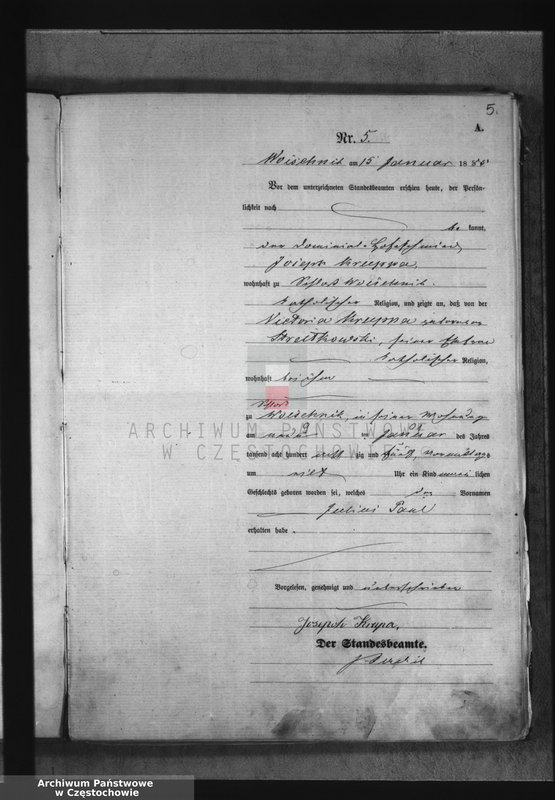 5.
A.
Nr. 5.
Woischnik am 15 Januar 188
Vor dem unterzeichneten Standesbeamten erschien heute, der Persön-
lichkeit nach
be kannt,
der Dominial-
Joseph Kruppa,
wohnhaft zu Schloß Woischnik.
katholischer Religion, und zeigte an, daß von der
Victoria Kruppa geborenen
Streitkowski, seiner Ehefrau
katholischer Religion,
wohnhaft bei ihm
Schloß
zu Woischnik, in seiner Wohnung
am ten Januar des Jahres
tausend acht hundert acht zig und fünf, Vormittags
um Uhr ein Kind männ lichen
Geschlechts geboren worden sei, welches den Vornamen
Julius Paul
erhalten habe.
Vorgelesen, genehmigt und unterschrieben
Joseph Krupa,
Der Standesbeamte.
ARCHIWUM PAŃSTWOWE
W CZĘSTOCHOWIE
Archiwum Państwowe
w Częstochowie